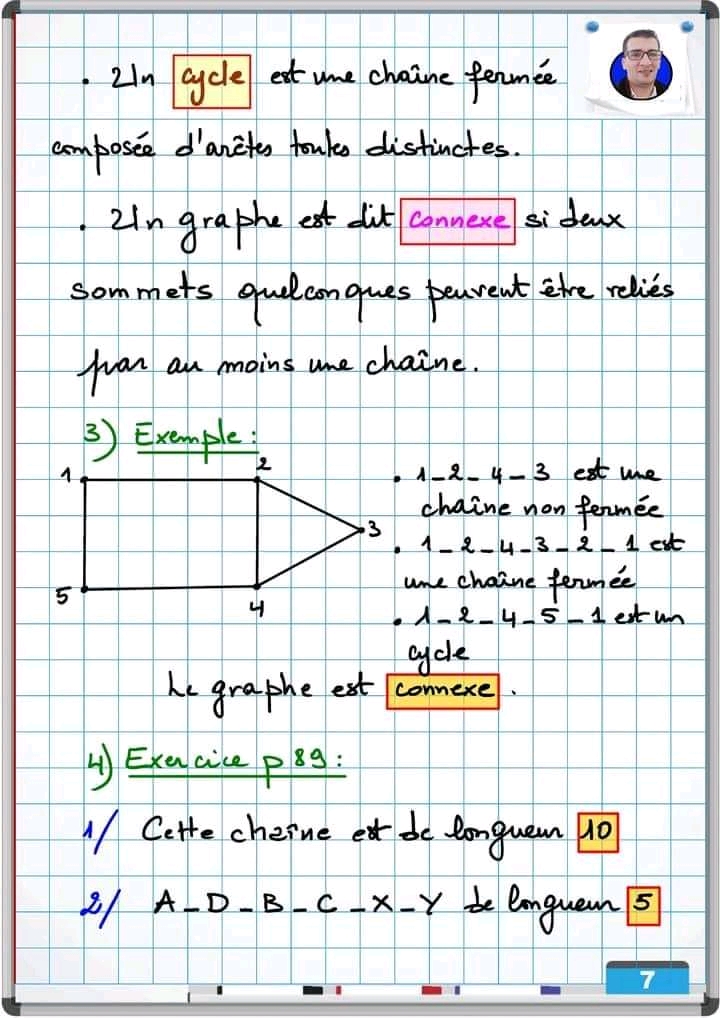 . Un cycle est une chaîne fermée
composée d'arêtes toutes distinctes.
. Un graphe est dit connexe si deux
sommets quelconques peuvent être reliés
par au moins une chaîne.
3) Exemple :
1
2
3
5
4
. 1_2_4_3 est une
chaîne non fermée
. 1_2_4_3_2_1 est
une chaîne fermée
. 1_2_4_5_1 est un
cycle
Le graphe est connexe.
4) Exercice p 89 :
1/ Cette chaîne est de longueur 10
2/ A_D_B_C_X_Y de longueur 5
7